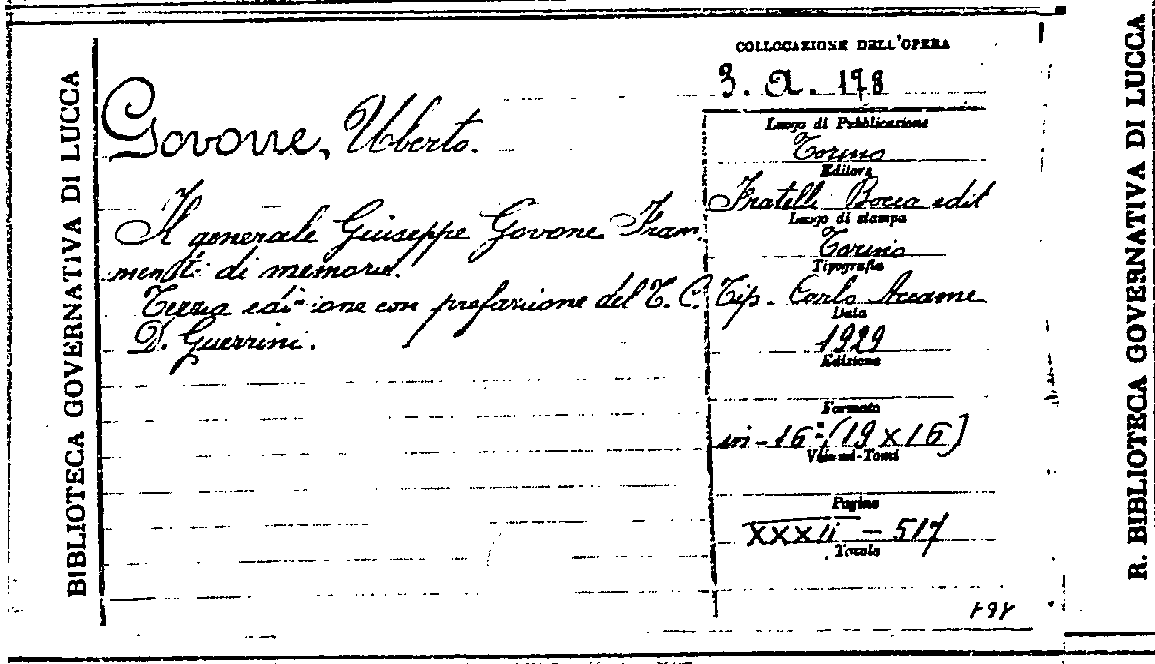 BIBLIOTECA GOVERNATIVA DI LUCCA
COLLOCAZIONE DELL'OPERA
3. a. 178
Govone, Uberto.
Il generale Giuseppe Govone. Fram.
menti di memorie.
Terza edizione con prefazione del T. C.
D. Guerrini.
Luogo di Pubblicazione
Torino
Editore
Fratelli Bocca edit
Luogo di stampa
Torino
Tipografia
Tip. Carlo Accame
Data
1929
Edizione
Formato
in-16° (19 x 16)
Volumi-Tomi
Pagine
XXXII - 517
Tavole
R. BIBLIOTECA GOVERNATIVA DI LUCCA